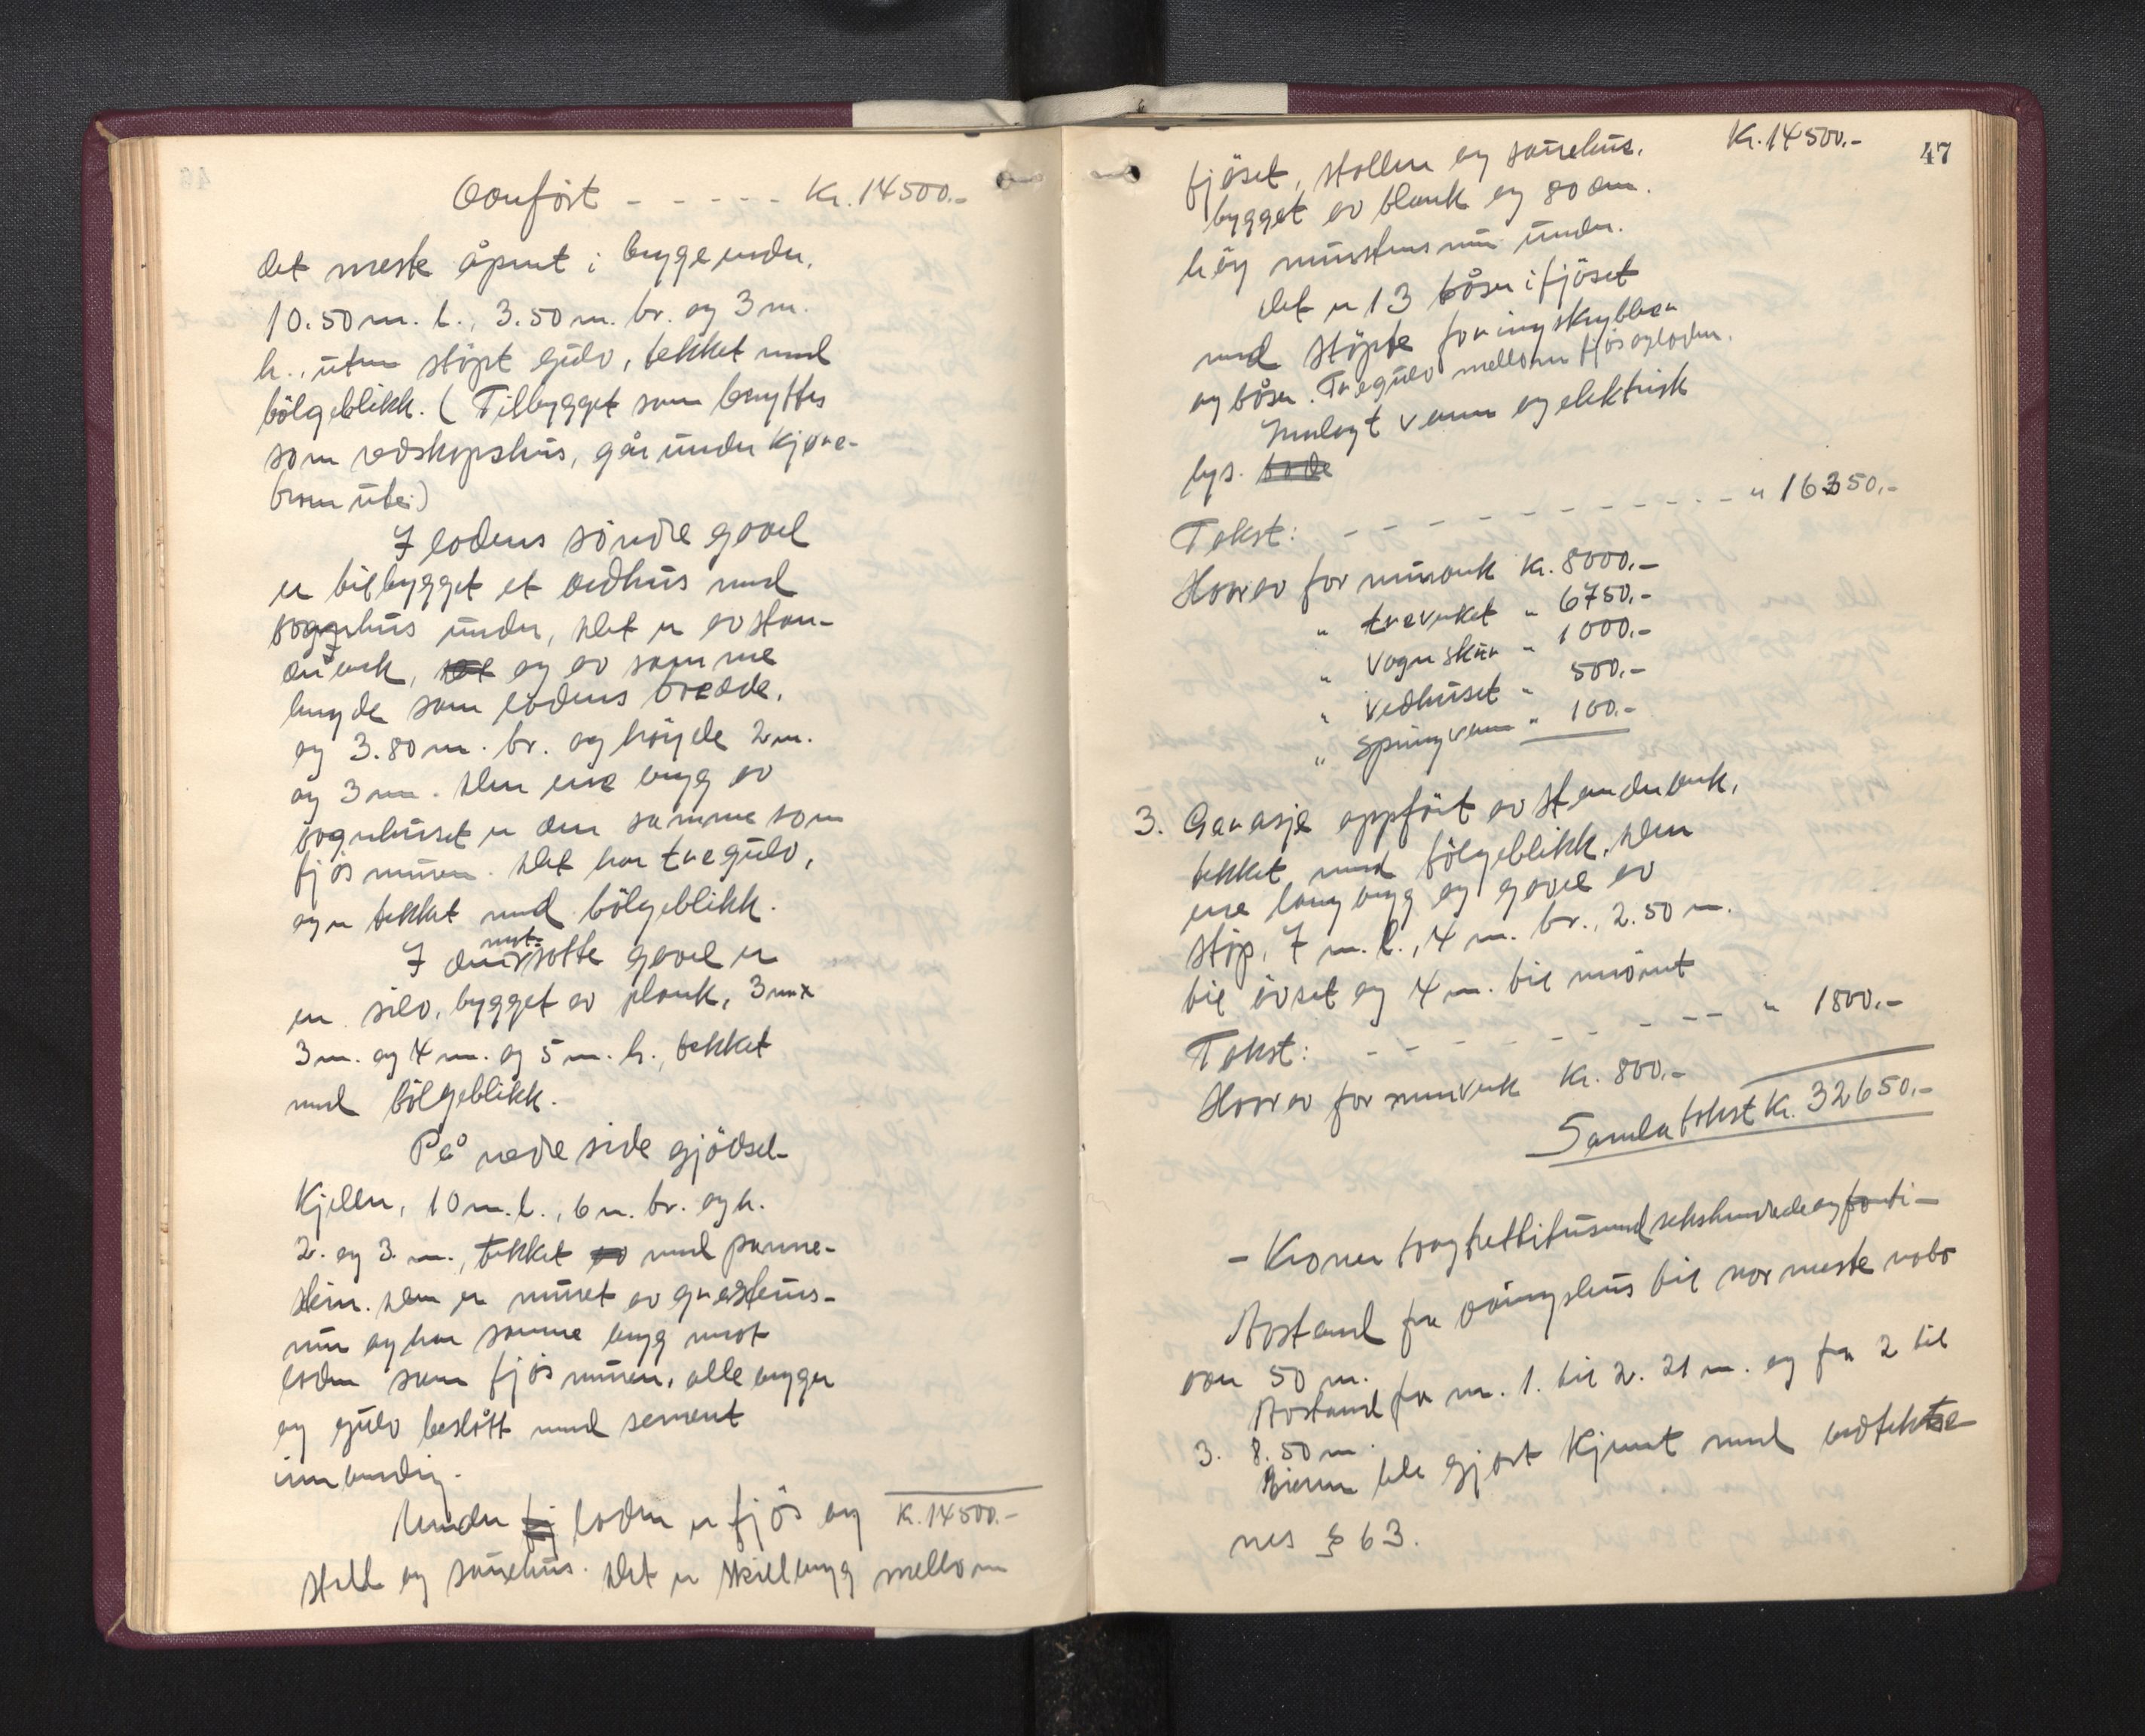 Overført - - - - - Kr. 14500.-
det meste åpent i begge ender.
10.50 m. l., 3.50 m. br. og 3 m.
h., uten støpt gulv, tekket med
bölgeblikk. (Tilbygget som benyttes
som redskapshus, går under kjøre-
broen ute.)
I lodens söndre gavel
er tilbygget et vedhus med
vognhus under, det er av sten-
derverk, og av samme
lengde som lodens bredde,
og 3.80 m. br. og höyde 2 m.
og 3 m. Den ene vegg av
vognhuset er den samme som
fjösmuren. Det har tregulv,
og er tekket med bölgeblikk.
I den motsatte gavel er
en silo, bygget av plank, 3 m x
3 m. og 4 m. og 5 m. h., tekket
med bölgeblikk.
På nedre side gjödsel-
kjeller, 10 m. l., 6 m. br. og h.
2. og 3. m., tekket med panne-
stein. Den er muret av gråsteins-
mur og har samme vegg mot
loden som fjösmuren, alle vegger
og gulv beslått med sement
innvendig.
Under loden er fjös og Kr. 14500.-
stall og sauehus. Det er skillevegg mellom
47
Kr. 14500.-
fjöset, stallen og sauehus,
bygget av plank og 80 cm.
höy murstensmur under.
Det er 13 båser i fjöset
med støpte foringskrybber
og båser. Tregulv mellom fjös og loden.
Innlagt vann og elektrisk
lys.
Takst: - - - - - - - - - " 16350.-
Herav for murverk kr. 8000.-
" treverket " 6750.-
" Vognskur " 1000.-
" Vedhuset " 500.-
" Springvann " 100.-
3. Garasje oppfört av stenderverk,
tekket med bölgeblikk. Den
ene langvegg og gavel av
støp, 7 m. l., 4 m. br., 2.50 m.
til övset og 4 m. til mönet
Takst: - - - - - - - - " 1800.-
Herav for murverk Kr. 800.-
Samla takst Kr. 32650.-
- Kroner toogtrettitusindsekshundredeogfemti -
Avstand fra våningshus til nærmeste nabo
over 50 m.
Avstand fra nr. 1. til 2. 21 m. og fra 2 til
3. 8.50 m.
Eieren ble gjort kjent med vedtekte-
nes § 63.